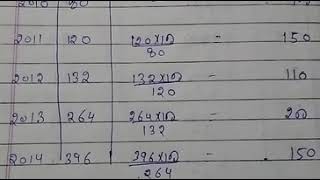 2010 80
2011 120 120×100/80 = 150
2012 132 132×100/120 = 110
2013 264 264×100/132 = 200
2014 396 396×100/264 = 150